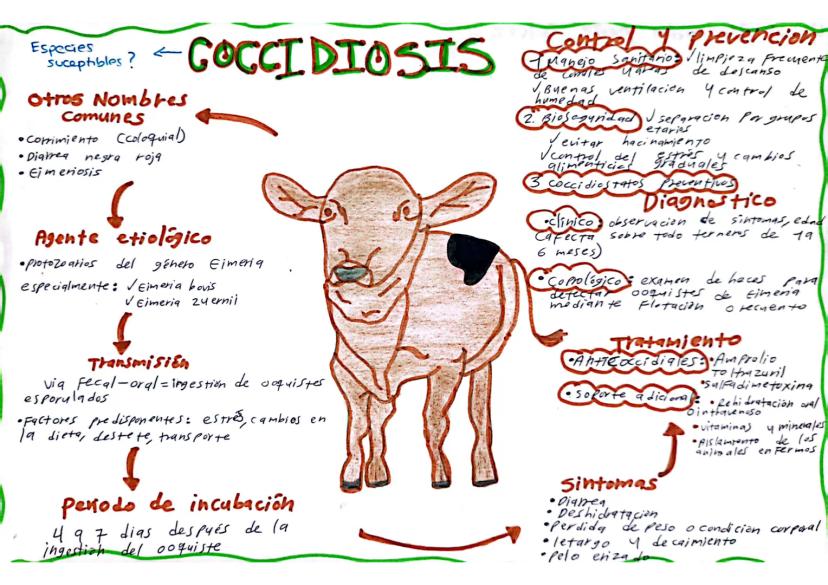 Especies
suceptibles?
COCCIDIOSIS
Otros Nombres
Comunes
• Corrimiento (coloquial)
• Diarrea negra roja
• Eimeriosis
Agente etiológico
• protozoarios del género Eimeria
especialmente: ✓ Eimeria bovis
✓ Eimeria zuernii
Transmisión
via fecal-oral = ingestión de ooquistes
esporulados
• Factores predisponentes: estrés, cambios en
la dieta, destete, transporte
Periodo de incubación
4 a 7 dias después de la
ingestión del ooquiste
Control y prevención
1 Manejo sanitario: ✓ limpieza frecuente
de corrales y áreas de descanso
✓ Buenas ventilación y control de
humedad
2. Bioseguridad ✓ separación por grupos
etarios
✓ evitar hacinamiento
✓ control del estrés y cambios
alimenticios graduales
3 coccidiostatos preventivos
Diagnostico
• clínico: observacion de sintomas, edad
(afecta sobre todo terneros de 1 a
6 meses)
• Coprológico: examen de heces para
detectar ooquistes de Eimeria
mediante flotación o recuento
Tratamiento
• Anticoccidiales: • Amprolio
Toltrazuril
• Sulfadimetoxina
• Soporte adicional: • Rehidratación oral
o intravenoso
• vitaminas y minerales
• Aislamiento de los
animales enfermos
Sintomas
• Diarrea
• Deshidratación
• Perdida de peso o condición corporal
• letargo y decaimiento
• Pelo erizado